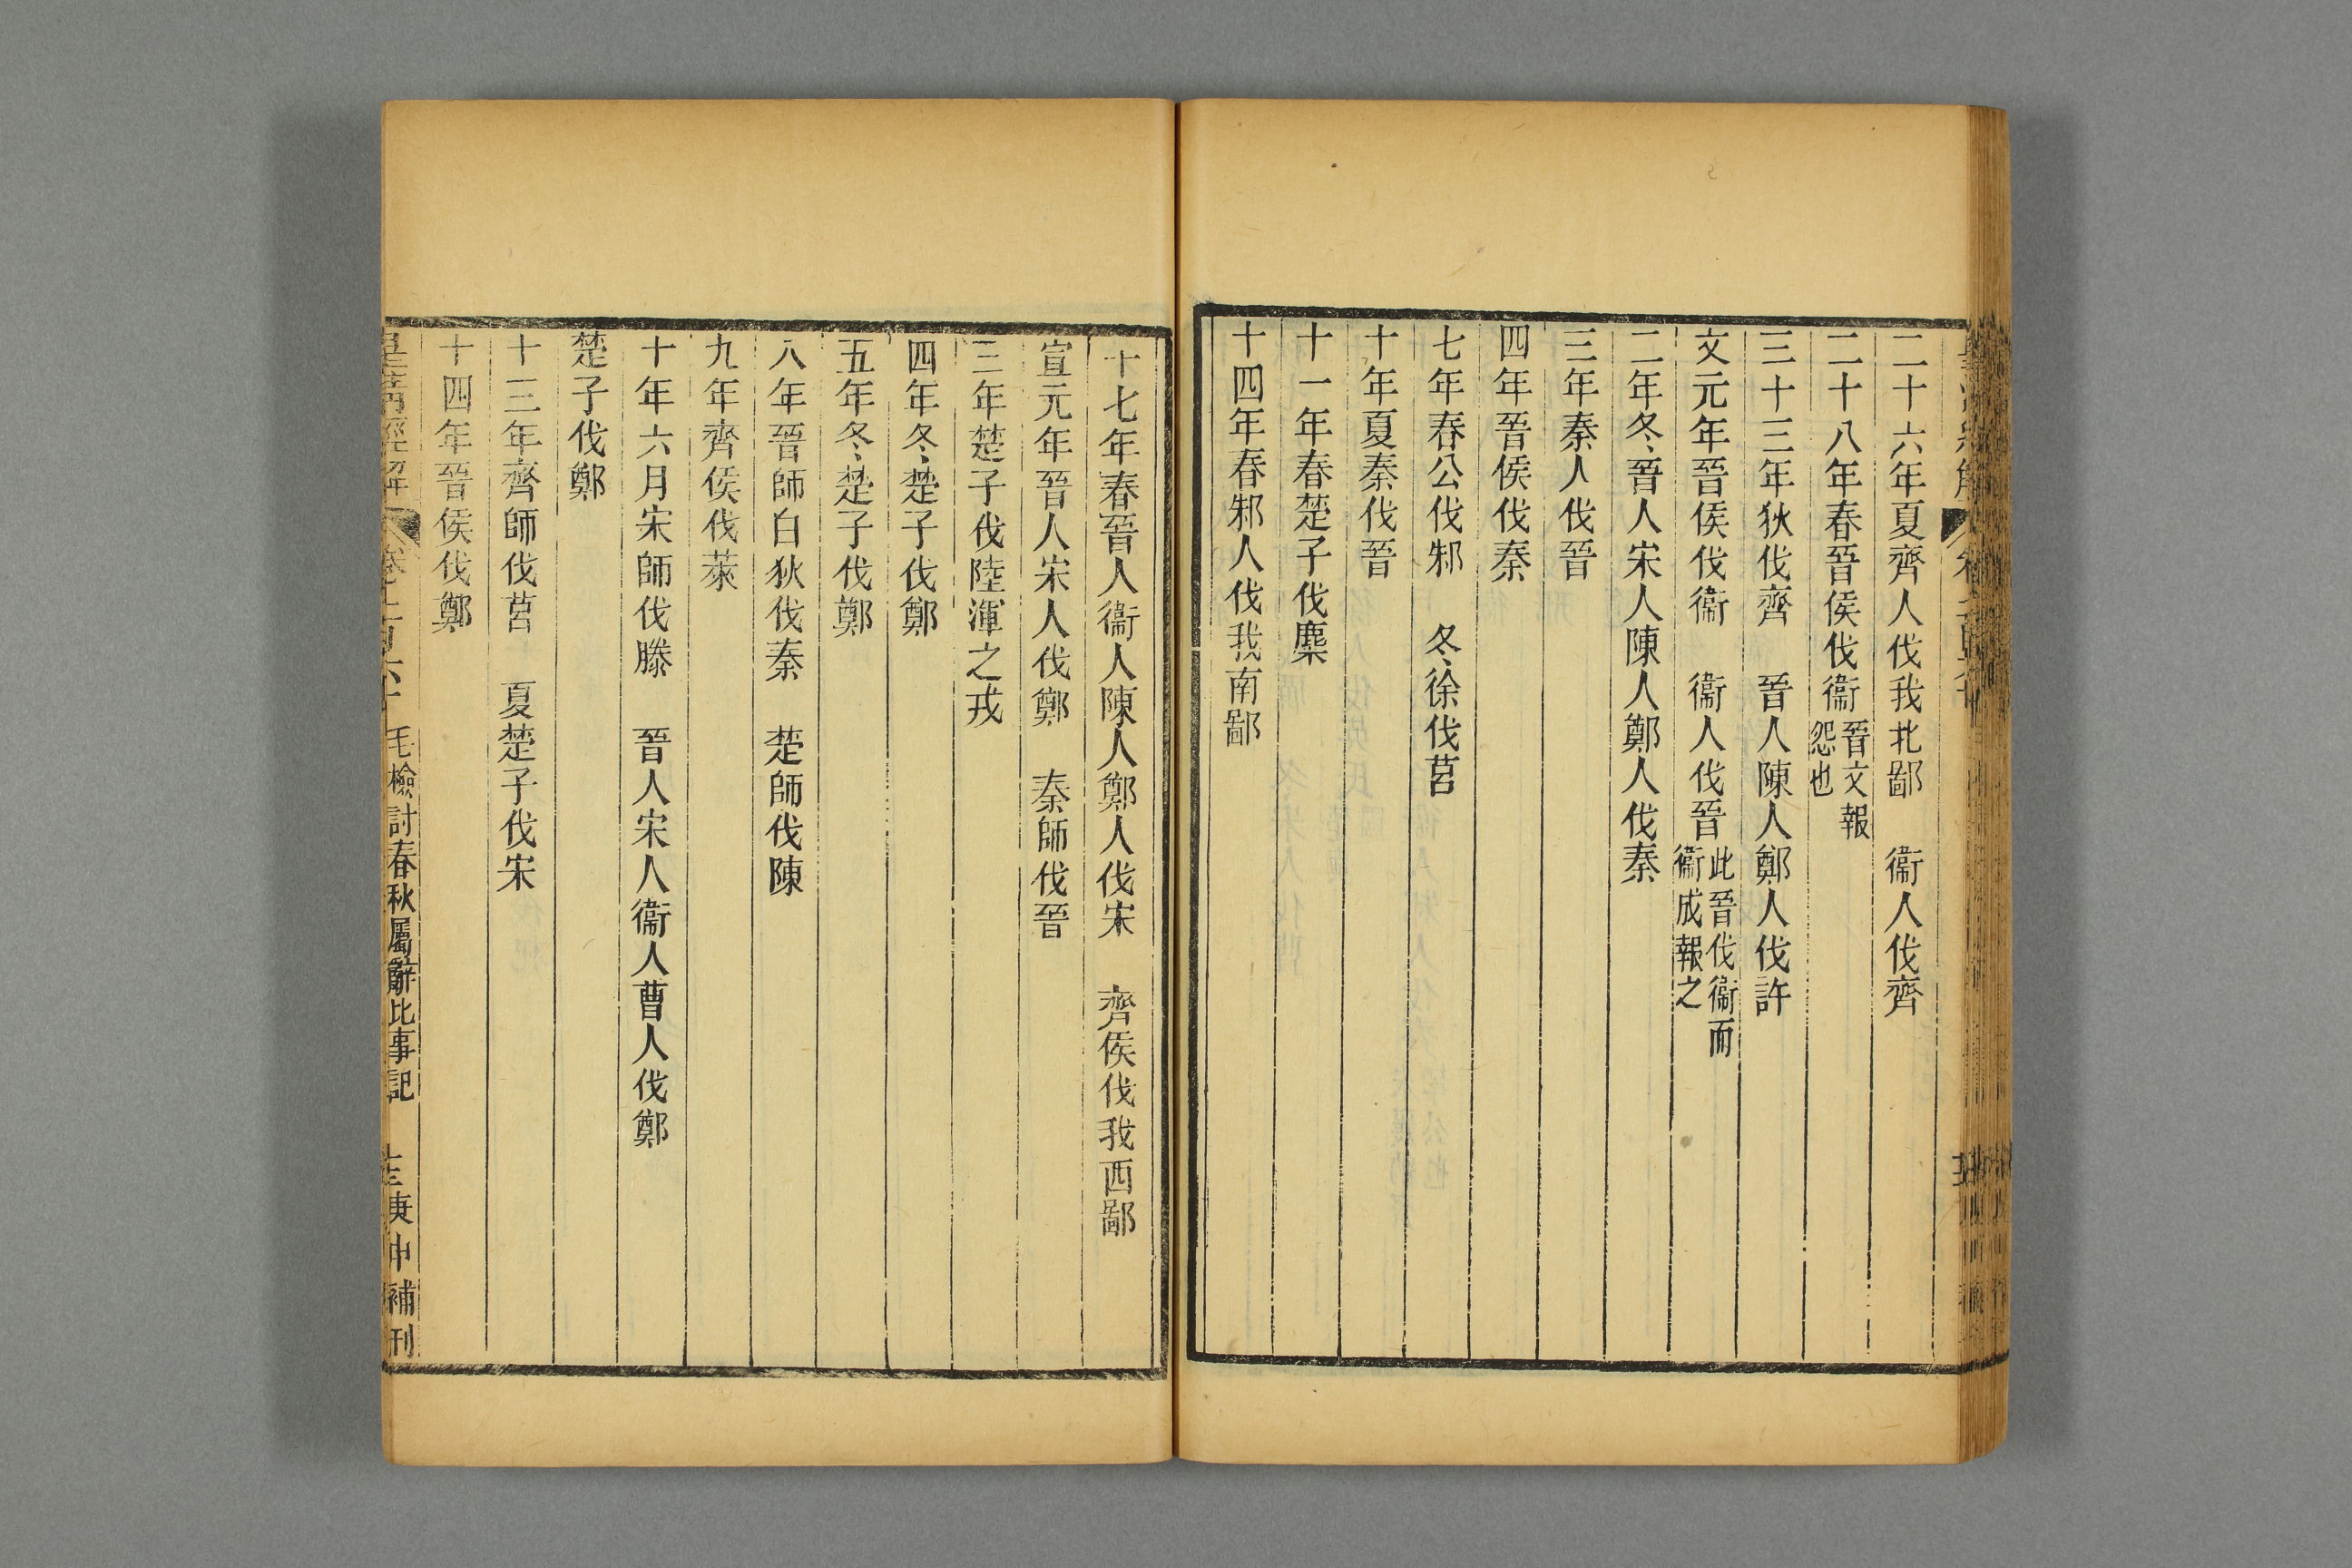 二十六年夏齊人伐我北鄙　衞人伐齊
二十八年春晉侯伐衞晉文報怨也
三十三年狄伐齊　晉人陳人鄭人伐許
文元年晉侯伐衞　衞人伐晉此晉伐衞而衞成報之
二年冬晉人宋人陳人鄭人伐秦
三年秦人伐晉
四年晉侯伐秦
七年春公伐邾　冬徐伐莒
十年夏秦伐晉
十一年春楚子伐麇
十四年春邾人伐我南鄙
十七年春晉人衞人陳人鄭人伐宋　齊侯伐我西鄙
宣元年晉人宋人伐鄭　秦師伐晉
三年楚子伐陸渾之戎
四年冬楚子伐鄭
五年冬楚子伐鄭
八年晉師白狄伐秦　楚師伐陳
九年齊侯伐萊
十年六月宋師伐滕　晉人宋人衞人曹人伐鄭
楚子伐鄭
十三年齊師伐莒　夏楚子伐宋
十四年晉侯伐鄭
皇淸經解　卷一百六十　毛檢討春秋屬辭比事記　庚申補刊